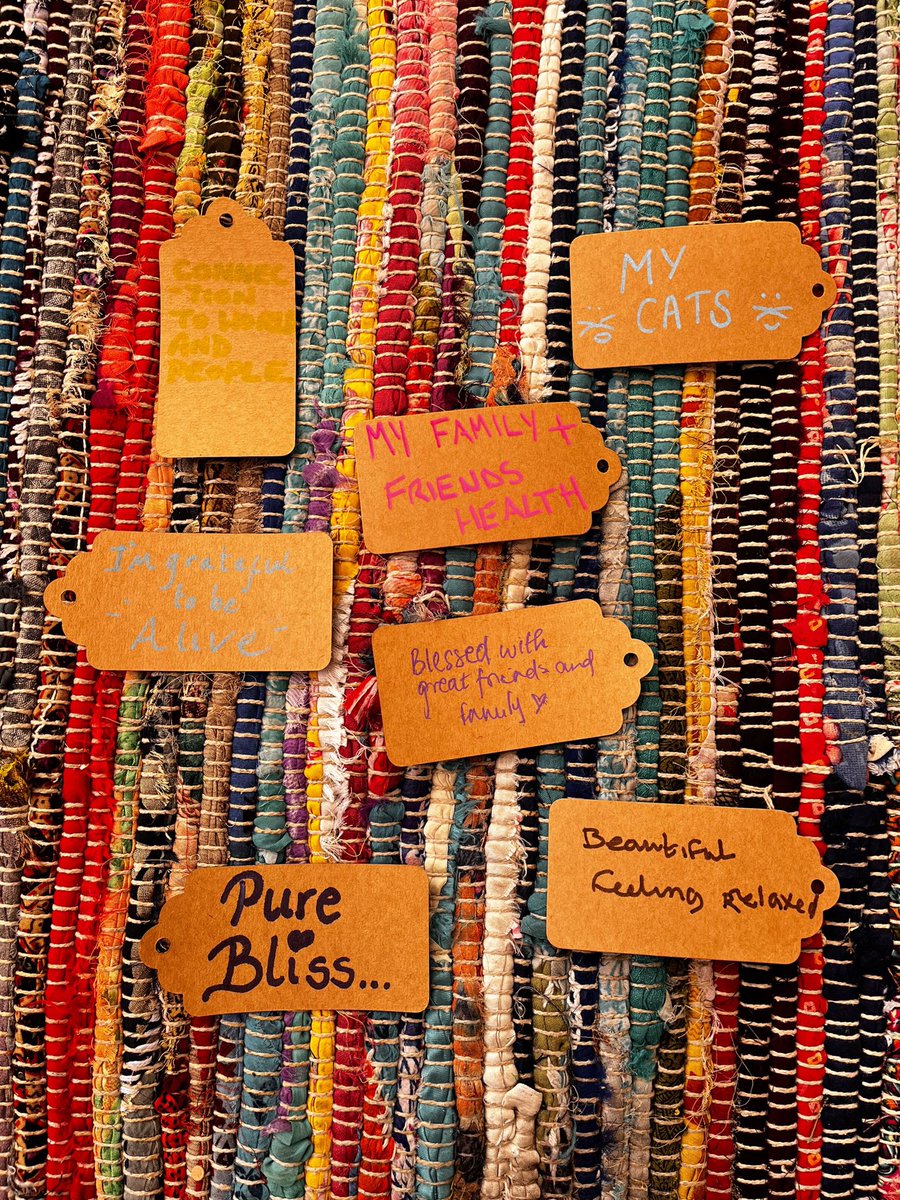 CONNEC
TION
TO
AND
PEOPLE
MY
CATS
MY FAMILY +
FRIENDS
HEALTH
I'm grateful
to be
Alive
Blessed with
great friends and
family
Beautiful
feeling relaxed
Pure
Bliss...